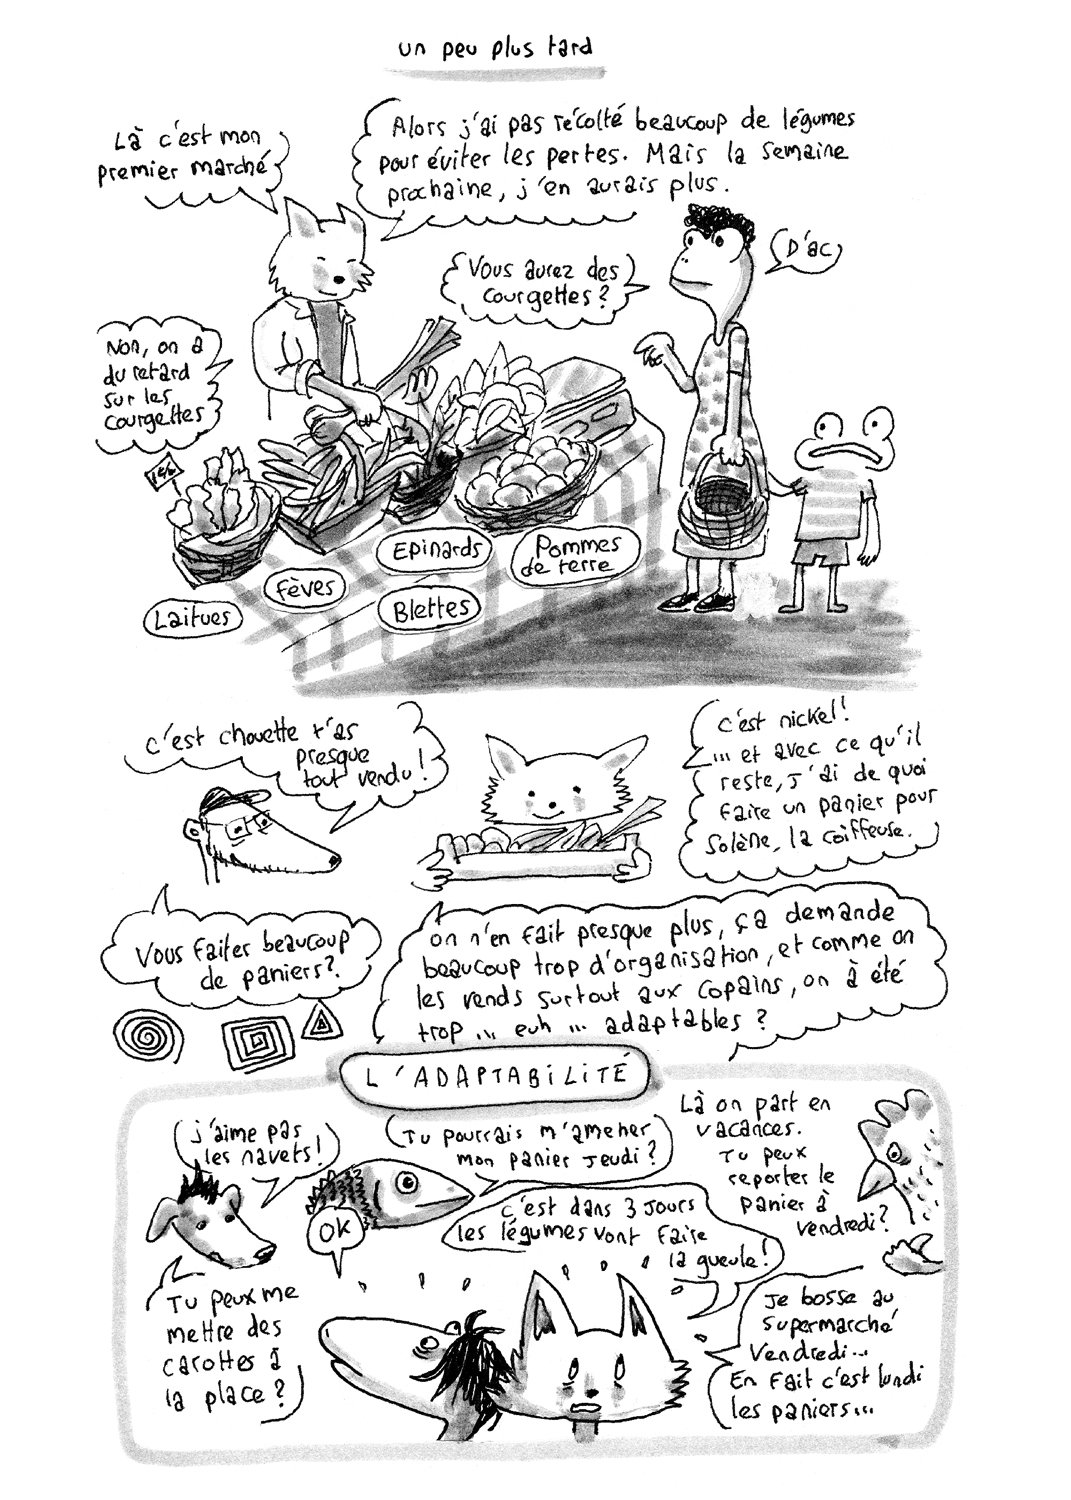 un peu plus tard
Là c'est mon
premier marché
Alors j'ai pas récolté beaucoup de légumes
pour éviter les pertes. Mais la semaine
prochaine, j'en aurais plus.
Vous aurez des
courgettes?
D'ac
Non, on a
du retard
sur les
courgettes
Epinards
Pommes
de terre
Fèves
Blettes
Laitues
c'est chouette t'as
presque
tout vendu!
c'est nickel!
... et avec ce qu'il
reste, j'ai de quoi
faire un panier pour
Solène, la coiffeuse.
Vous faites beaucoup
de paniers?
on n'en fait presque plus, ça demande
beaucoup trop d'organisation, et comme on
les vends surtout aux copains, on à été
trop ... euh ... adaptables?
L'ADAPTABILITÉ
j'aime pas
les navets!
Tu pourrais m'amener
mon panier jeudi?
Là on part en
vacances.
Tu peux
reporter le
panier à
vendredi?
OK
c'est dans 3 jours
les légumes vont faire
la gueule!
Tu peux me
mettre des
carottes à
la place?
Je bosse au
supermarché
vendredi...
En fait c'est lundi
les paniers...